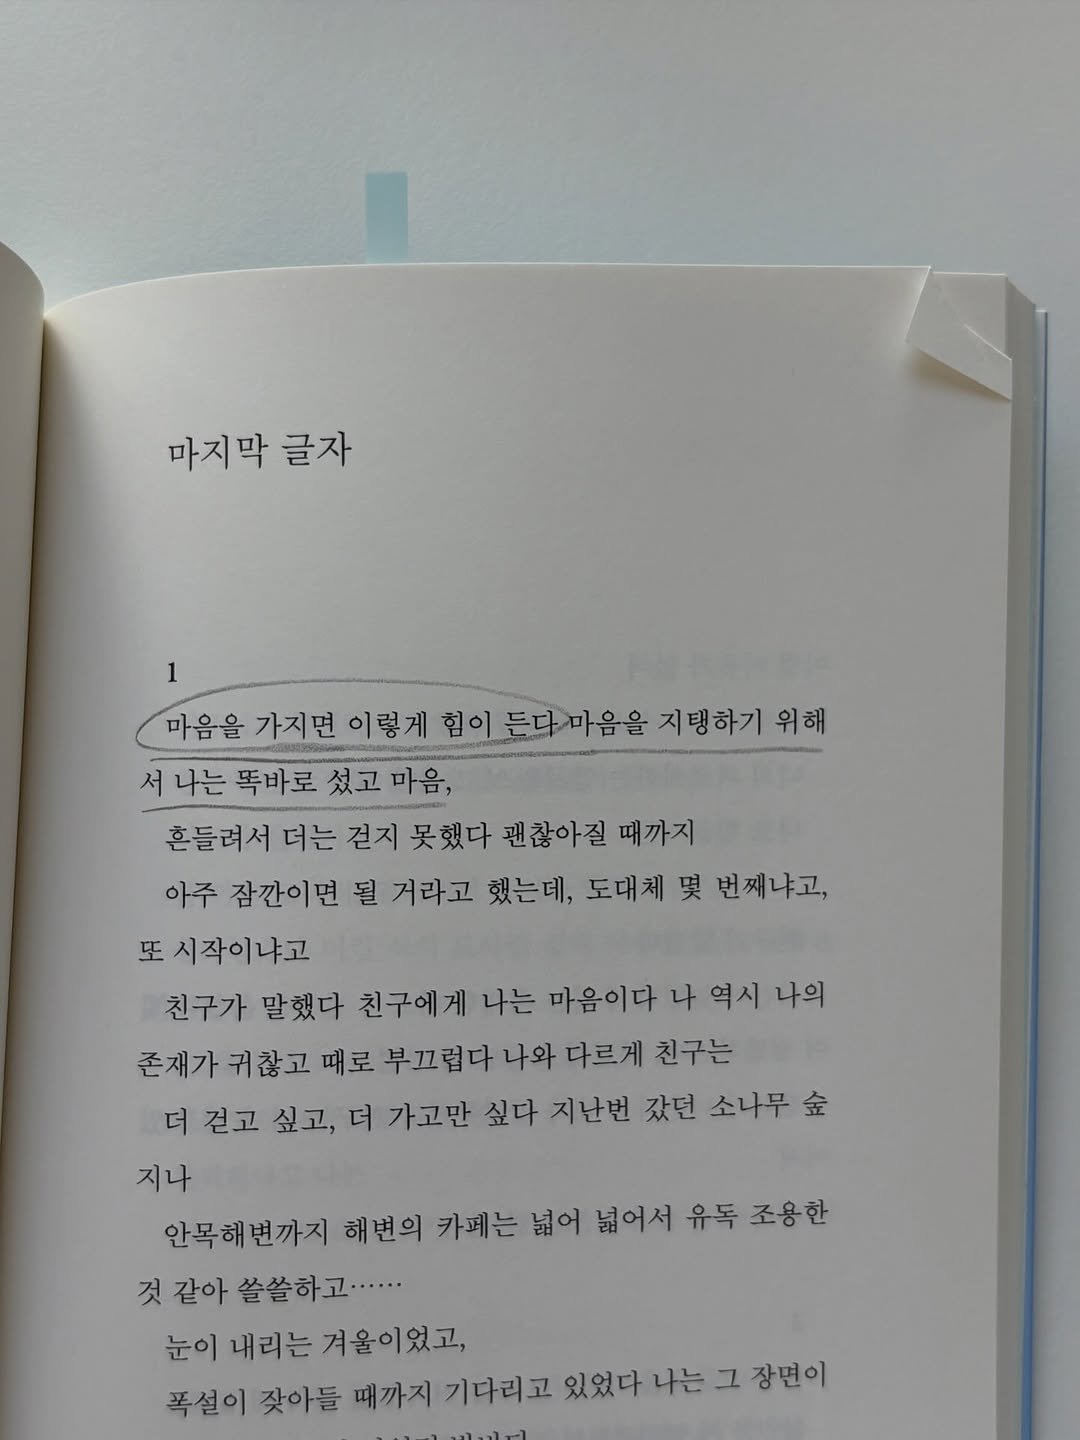 마지막 글자
1
마음을 가지면 이렇게 힘이 든다 마음을 지탱하기 위해
서 나는 똑바로 섰고 마음,
흔들려서 더는 걷지 못했다 괜찮아질 때까지
아주 잠깐이면 될 거라고 했는데, 도대체 몇 번째냐고,
또 시작이냐고
친구가 말했다 친구에게 나는 마음이다 나 역시 나의
존재가 귀찮고 때로 부끄럽다 나와 다르게 친구는
더 걷고 싶고, 더 가고만 싶다 지난번 갔던 소나무 숲
지나
안목해변까지 해변의 카페는 넓어 넓어서 유독 조용한
것 같아 쓸쓸하고⋯⋯
눈이 내리는 겨울이었고,
폭설이 잦아들 때까지 기다리고 있었다 나는 그 장면이